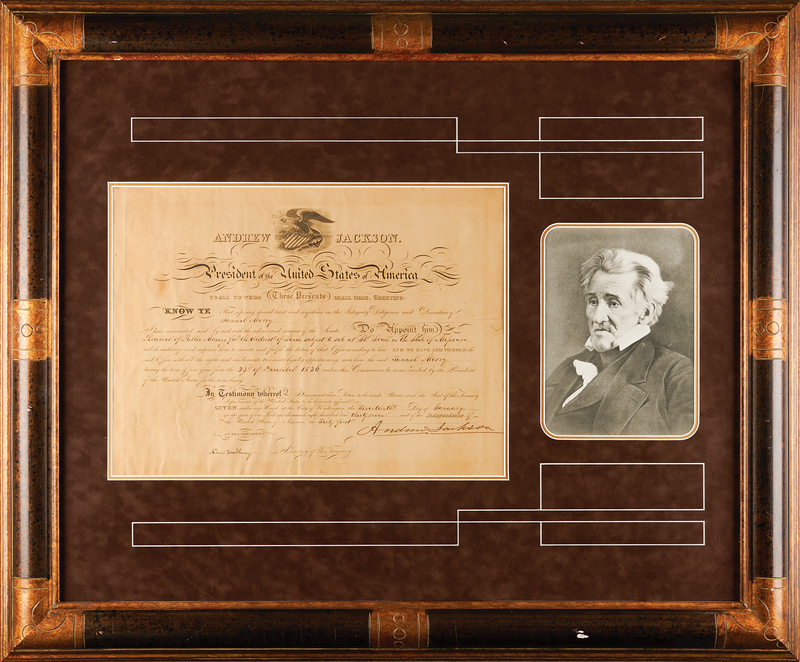 ANDREW JACKSON.
President of the United States of America
TO ALL TO WHOM (These Presents) SHALL COME, GREETING:
KNOW YE That reposing special trust and confidence in the Integrity Diligence and Discretion of
Samuel Merry
I have nominated and by and with the advice and consent of the Senate Do Appoint him
Receiver of Public Money for the District of Lands subject to sale at St Louis in the State of Missouri
and do authorize and empower him to execute and fulfil the duties of that Office according to law AND TO HAVE AND TO HOLD the
said Office with all the rights and emoluments thereunto legally appertaining unto him the said Samuel Merry
during the term of four years from the 23d of December 1836 unless this Commission be sooner revoked by the President
of the United States for the time being
In Testimony whereof I have caused these Letters to be made Patent and the Seal of the Treasury
Department of the United States to be hereunto affixed
GIVEN under my Hand at the City of Washington the Seventeenth Day of January
in the year of our Lord one thousand eight hundred and thirty seven and of the Independence of
the United States of America the Sixty first
Andrew Jackson
BY THE PRESIDENT
Levi Woodbury Secretary of the Treasury